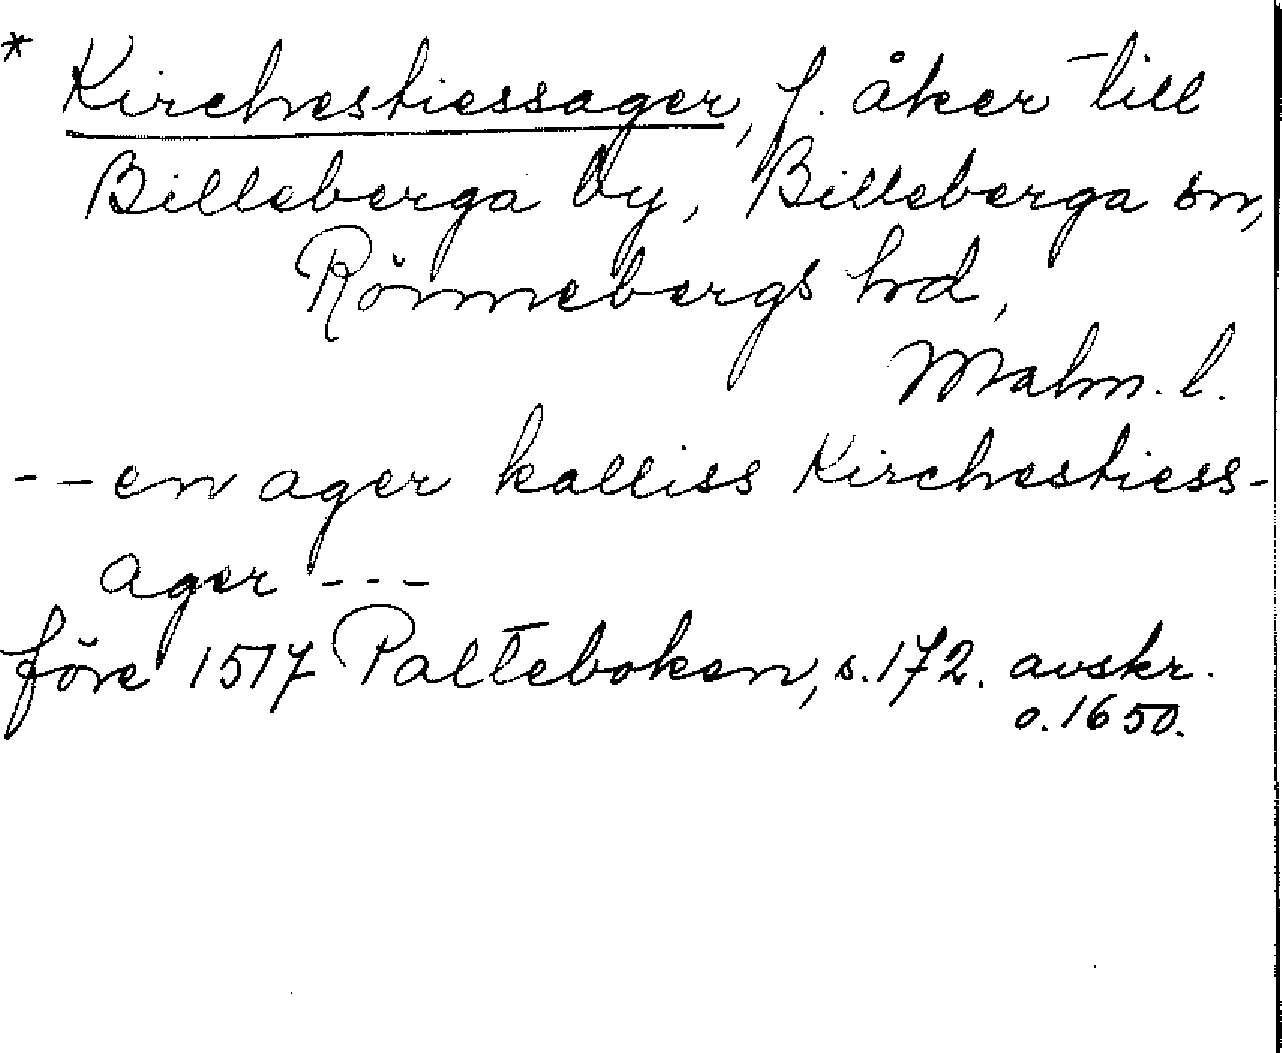 * Kirchestiessager, f. åker till
Billeberga by, Billeberga sn,
Rönnebergs hd,
Malm. l.
-- en ager kalliss Kirchestiess-
ager ---
före 1517 Palteboken, s. 172. avskr.
o. 1650.